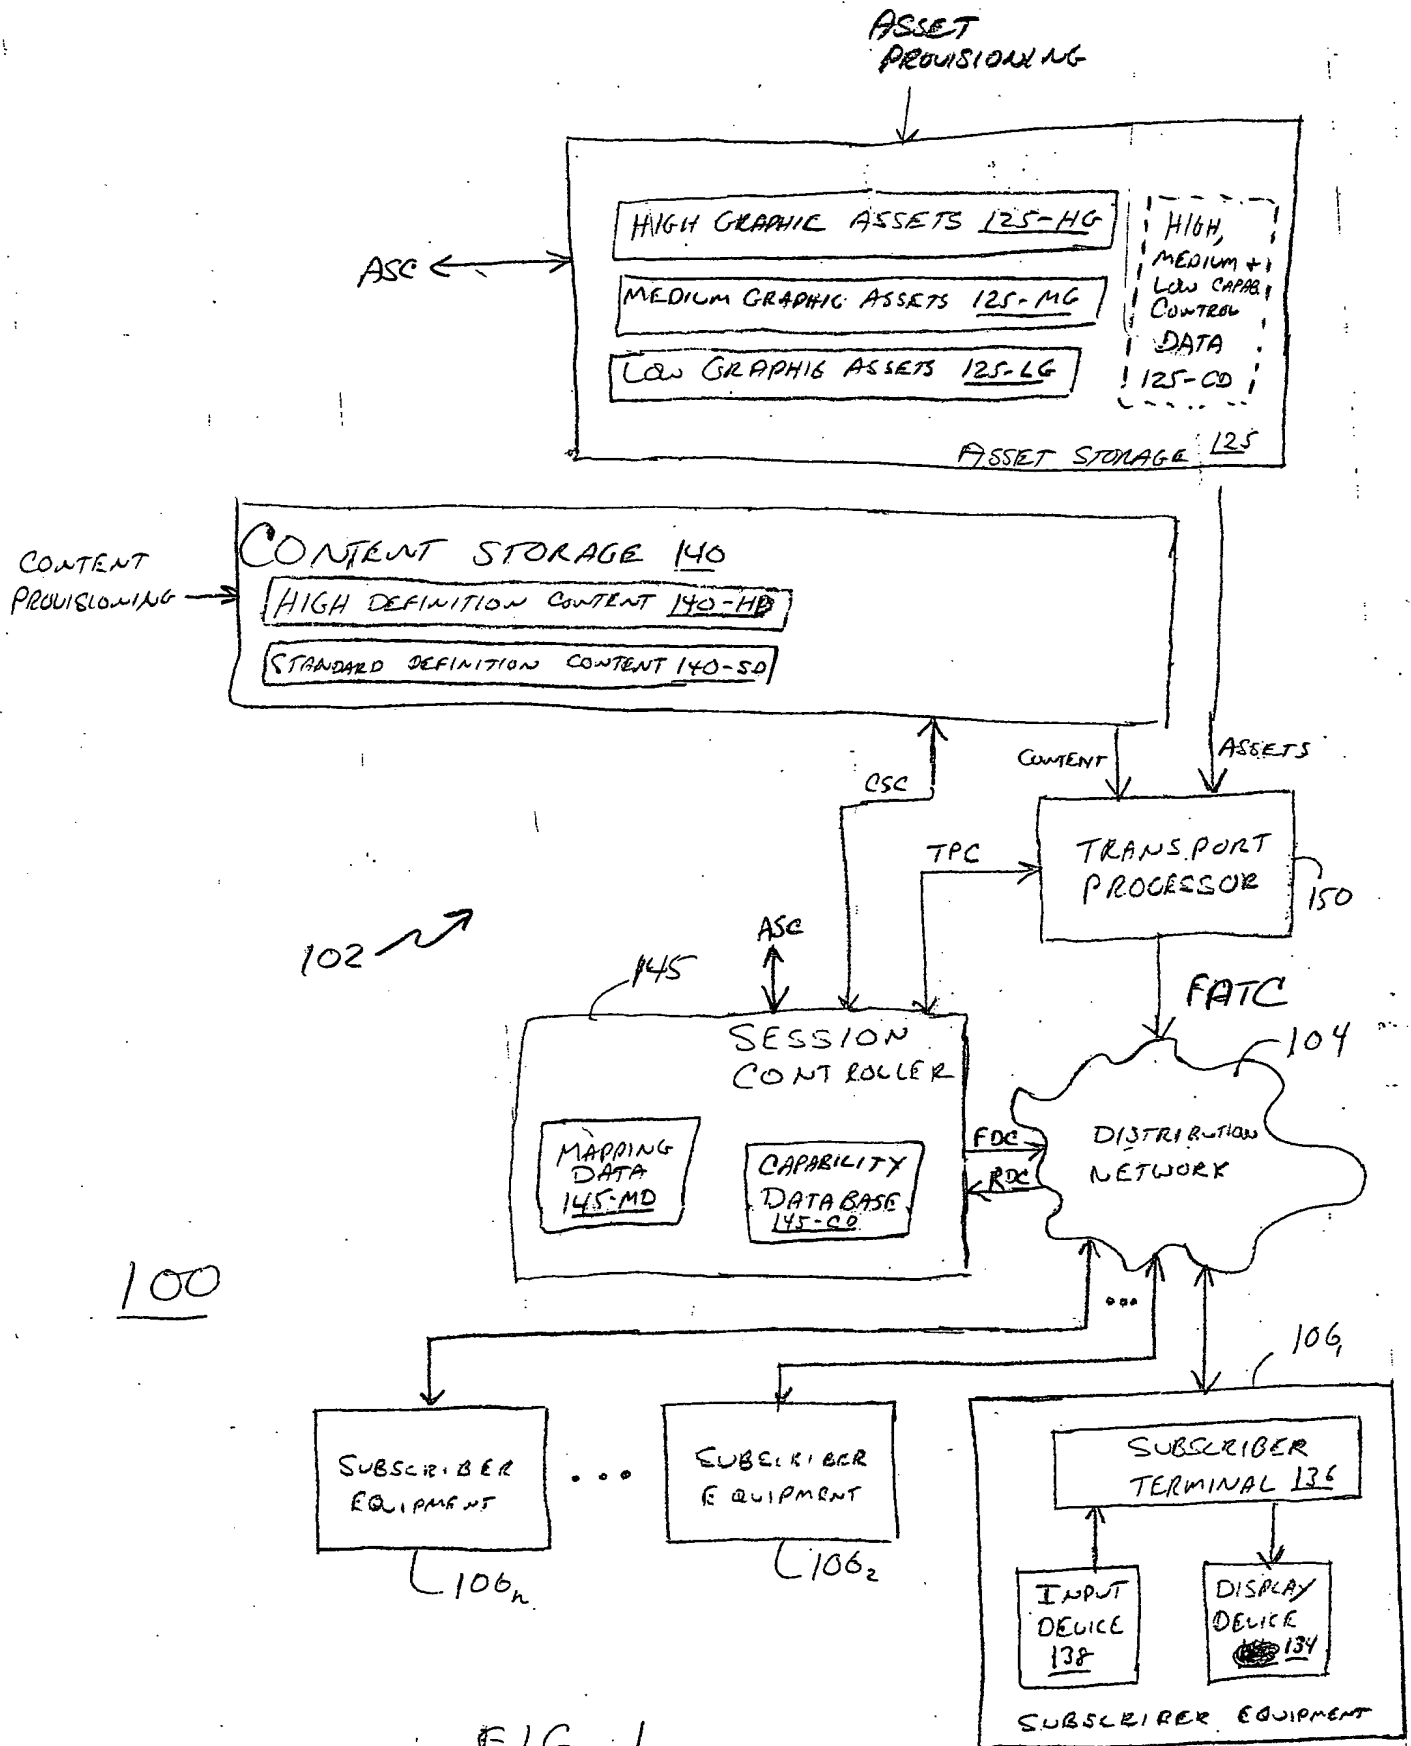 ASSET
PROVISIONING
HIGH GRAPHIC ASSETS 125-HG
MEDIUM GRAPHIC ASSETS 125-MG
LOW GRAPHIC ASSETS 125-LG
HIGH,
MEDIUM +
LOW CAPAB.
CONTROL
DATA
125-CD
ASC
ASSET STORAGE 125
CONTENT STORAGE 140
CONTENT
PROVISIONING
HIGH DEFINITION CONTENT 140-HD
STANDARD DEFINITION CONTENT 140-SD
CSC
CONTENT
ASSETS
TPC
TRANSPORT
PROCESSOR
150
102
ASC
145
FATC
104
SESSION
CONTROLLER
MAPPING
DATA
145-MD
CAPABILITY
DATABASE
145-CD
FDC
RDC
DISTRIBUTION
NETWORK
100
...
106₁
SUBSCRIBER
EQUIPMENT
106n
...
SUBSCRIBER
EQUIPMENT
106₂
SUBSCRIBER
TERMINAL 136
INPUT
DEVICE
138
DISPLAY
DEVICE
134
SUBSCRIBER EQUIPMENT
FIG. 1